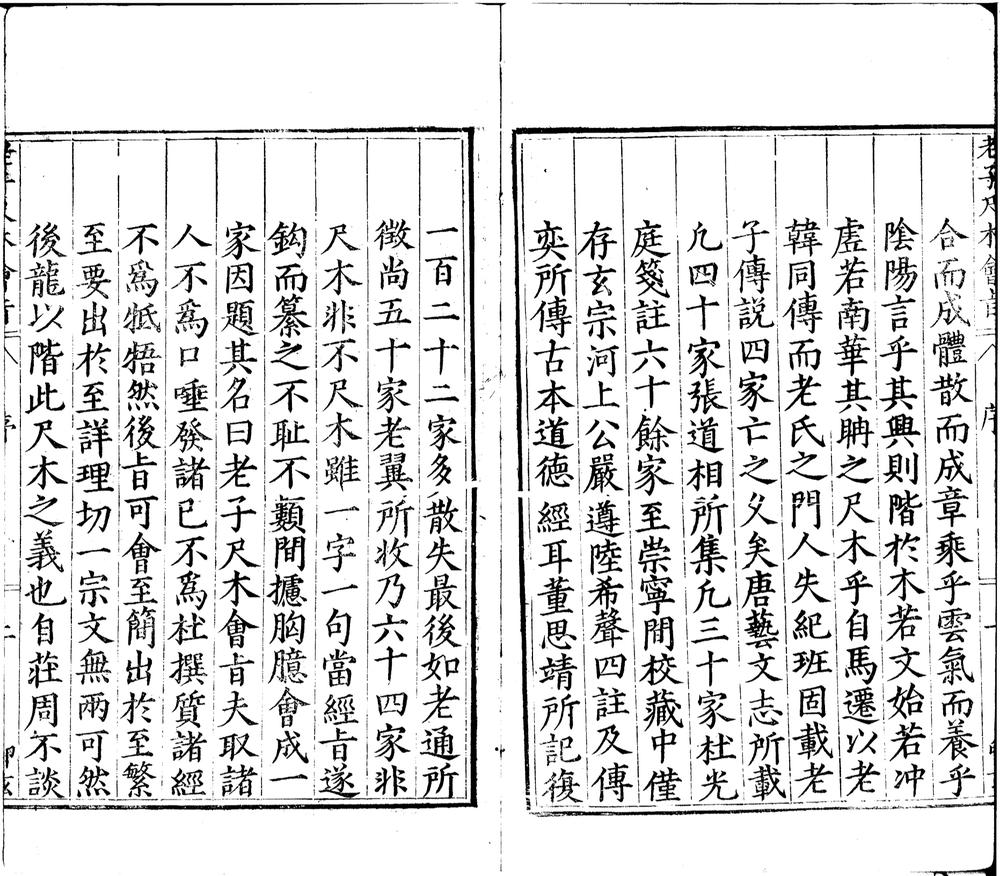 老子尺木會旨 序
合而成體散而成章乘乎雲氣而養乎
陰陽言乎其興則階於木若文始若冲
虗若南華其聃之尺木乎自馬遷以老
韓同傳而老氏之門人失紀班固載老
子傳說四家亡之乆矣唐藝文志所載
凢四十家張道相所集凢三十家杜光
庭箋註六十餘家至崇寧間校藏中僅
存玄宗河上公嚴遵陸希聲四註及傅
奕所傳古本道德經耳董思靖所記復
一百二十二家多散失最後如老通所
徵尚五十家老翼所收乃六十四家非
尺木非不尺木雖一字一句當經旨遂
鈎而纂之不耻不纇間攄胸臆會成一
家因題其名曰老子尺木會旨夫取諸
人不爲口唾發諸已不爲杜撰質諸經
不爲牴牾然後旨可會至簡出於至繁
至要出於至詳理切一宗文無兩可然
後龍以階此尺木之義也自莊周不談